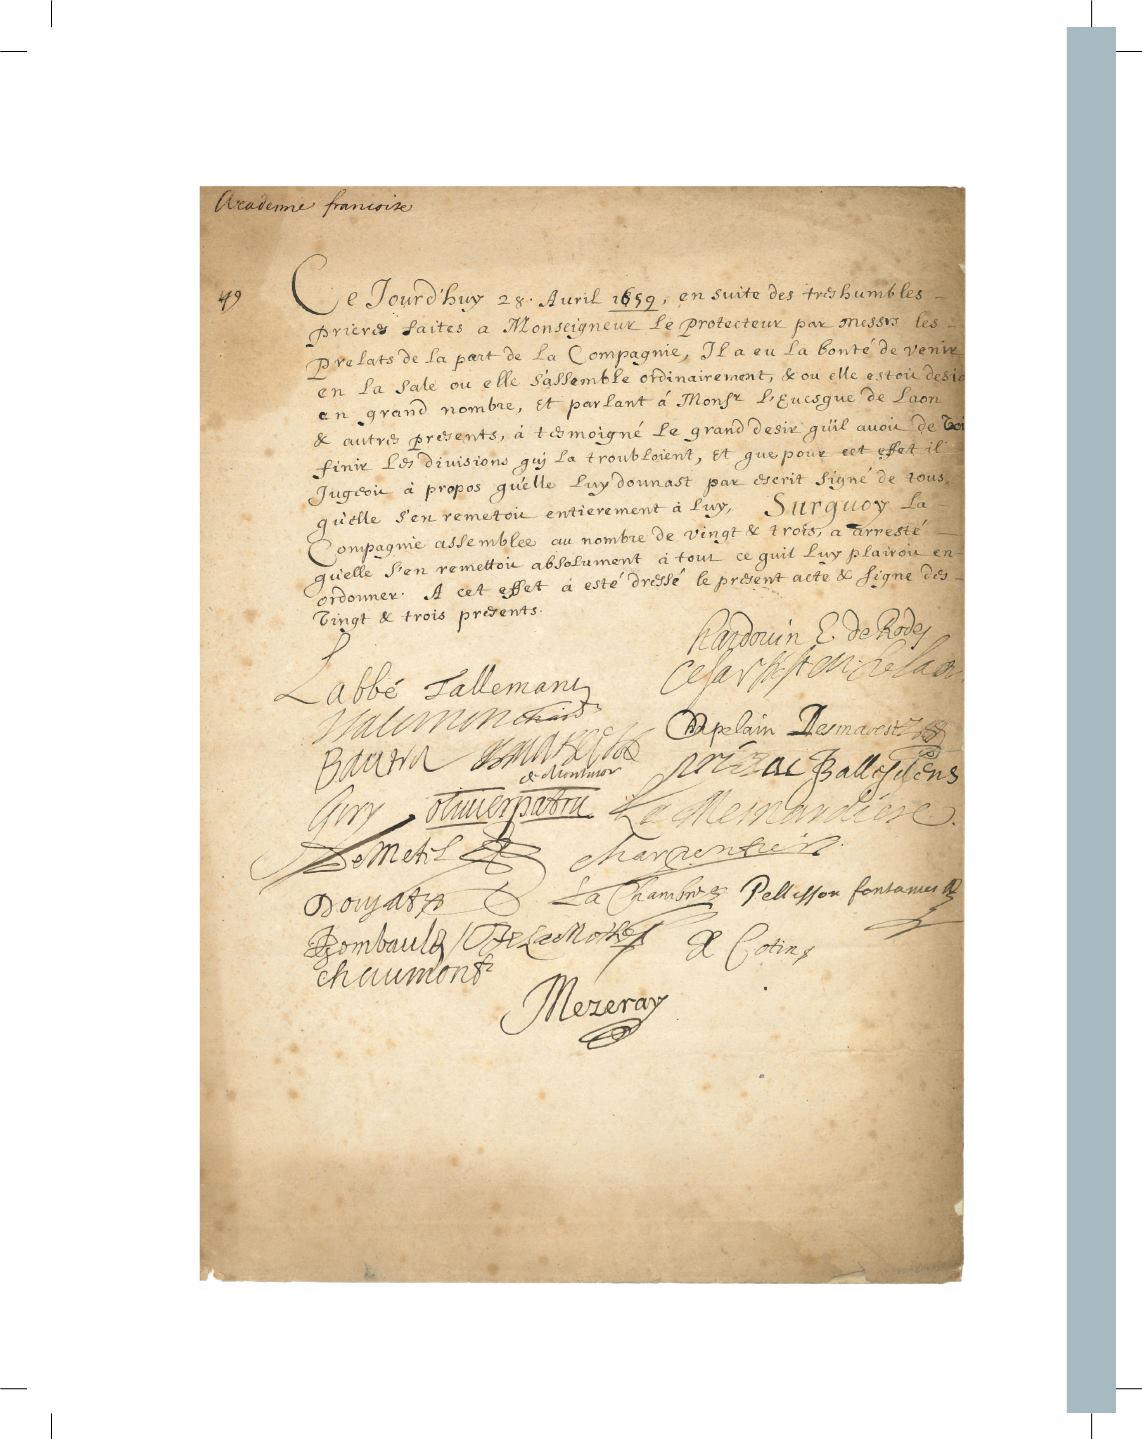 Academie francoise
49
Ce Jourd'huy 28. Avril 1659, en suite des treshumbles
prieres faites a Monseigneur Le Protecteur par Messrs les
Prelats de la part de la Compagnie, Il a eu la bonté de venir
en la Sale ou elle s'assemble ordinairement, & ou elle estoit desia
en grand nombre, et parlant à Monsr l'Euesque de Laon
& autres presents, à tesmoigné le grand desir qu'il avoit de voir
finir les divisions qui la troubloient, et que pour cet effet il
Jugeoit à propos qu'elle luy donnast par escrit signé de tous,
qu'elle s'en remetoit entierement à luy, Surquoy la
Compagnie assemblee au nombre de vingt & trois, a arresté
qu'elle s'en remettoit absolument à tout ce quil luy plairoit en
ordonner. A cet effet à esté dressé le present acte & signé des
vingt & trois presents.
Hardouin E. de Rodes
Labbé Tallemant
Chapelain Desmarests
Bautru de Montmor
Priezac Ballesdens
Giry oliuier patru La Mesnardiere.
Le Metel Charpentier
Doujat La Chambre Pellisson fontanier
Gombauld De La Mothe Cotin
Chaumont
Mezeray